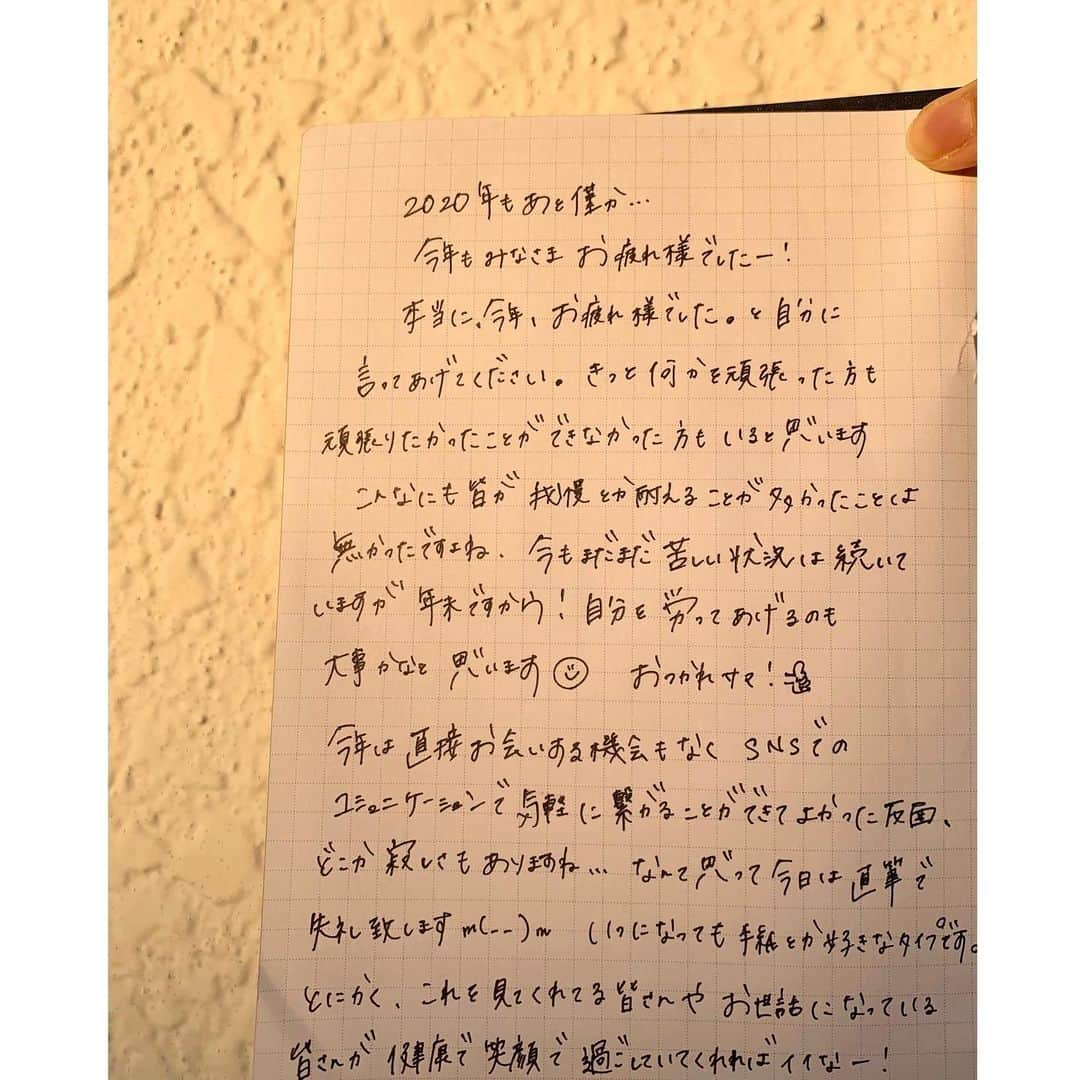 2020年もあと僅か…
今年もみなさま お疲れ様でしたー!
本当に、今年、お疲れ様でした。と自分に
言ってあげてください。きっと何かを頑張った方も
頑張りたかったことができなかった方もいると思います
こんなにも皆が 我慢とか耐えることが多かったことは
無かったですよね、今もまだまだ 苦しい状況は続いて
いますが 年末ですから! 自分を 労ってあげるのも
大事かなと 思います おつかれサマ!
今年は 直接お会いする機会もなく SNSでの
コミュニケーションで 気軽に 繋がることができて よかった反面、
どこか 寂しさもありますね… なんて思って 今日は 直筆で
失礼致します m(--)m いつになっても 手紙とか好きなタイプです。
とにかく、これを見てくれてる皆さんや お世話になっている
皆さんが 健康で 笑顔で 過ごしていてくれればイイなー!